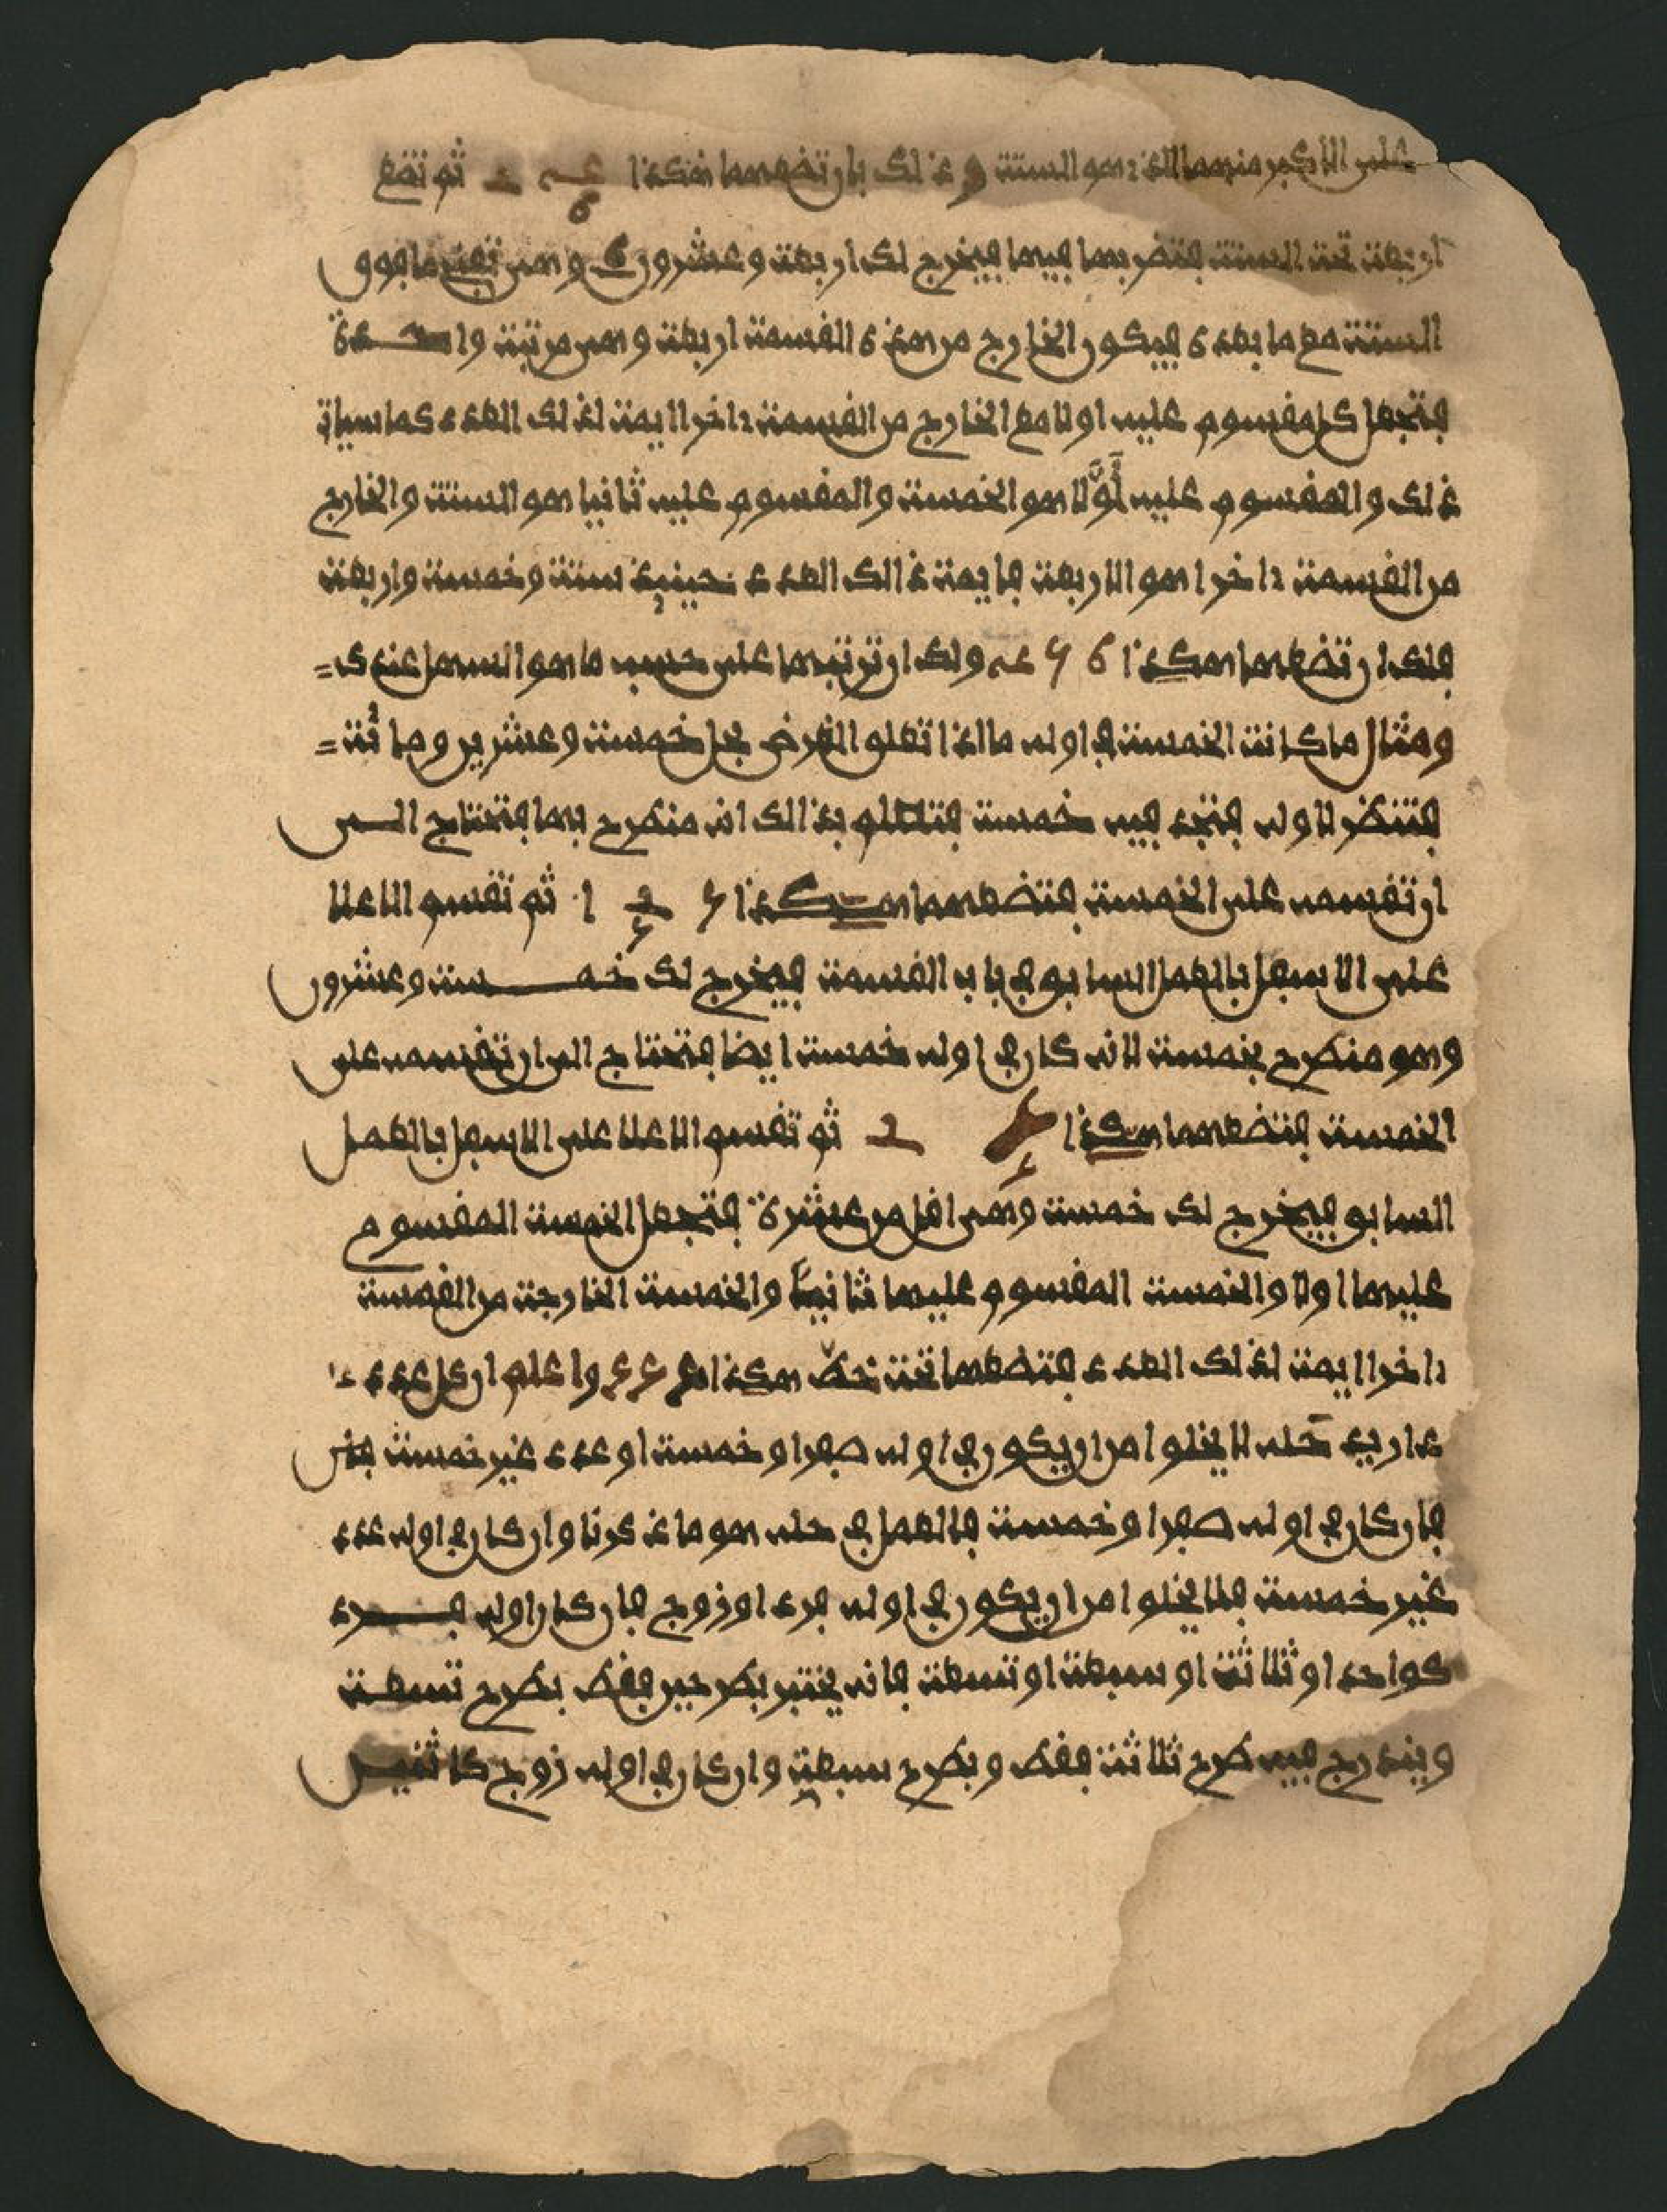 على الاكبر منهما الذي هو الستة وذلك بان تضعهما هكذا ثم تضع
اربعة تحت الستة فتضربها فيها فيخرج لك اربعة وعشرون وهي تفني ما فوق
الستة مع ما بعده فيكون الخارج من هذه القسمة اربعة وهي مرتبة واحدة
فتجعل كل مقسوم عليه اولا مع الخارج من القسمة ءاخرا ايمة لذلك العدد كما سياتي
ذلك والمقسوم عليه أَوَّلا هو الخمسة والمقسوم عليه ثانيا هو الستة والخارج
من القسمة ءاخرا هو الاربعة فايمة ذالك العدد حينيذ ستة وخمسة واربعة
فلك ان تضعهما هكذا ولك ان ترتبها على حسب ما هو السهل عندك
ومثال ما كانت الخمسة في اوله ما اذا تعلق الغرض بحل خمسة وعشرين ومائة
فتنظر لاوله فتجد فيه خمسة فتعلم بذالك انه منطرح بها فتحتاج الى
ان تقسمه على الخمسة فتضعهما هكذا ثم تقسم الاعلا
على الاسفل بالعمل السابق في باب القسمة فيخرج لك خمسة وعشرون
وهو منطرح بخمسة لانه كان في اوله خمسة ايضا فتحتاج الى ان تقسمه على
الخمسة فتضعهما هكذا ثم تقسم الاعلا على الاسفل بالعمل
السابق فيخرج لك خمسة وهي اقل من عشرة فتجعل الخمسة المقسوم
عليها اولا والخمسة المقسوم عليها ثانيا والخمسة الخارجة من القسمة
ءاخرا ايمة لذلك العدد فتضعها تحت خط هكذا واعلم ان كل عدد
اريد حله لا يخلو امر ان يكون في اوله صفر او خمسة او عدد غير خمسة
فان كان في اوله صفر او خمسة فالعمل في حله هو ما ذكرنا وان كان في اوله عدد
غير خمسة فلا يخلو امر ان يكون في اوله فرد او زوج فان كان اوله فرد
كواحد او ثلاثة او سبعة او تسعة فانه يختبر بطرحين فقط بطرح تسعة
ويندرج فيه طرح ثلاثة فقط وبطرح سبعة وان كان في اوله زوج كاثنين